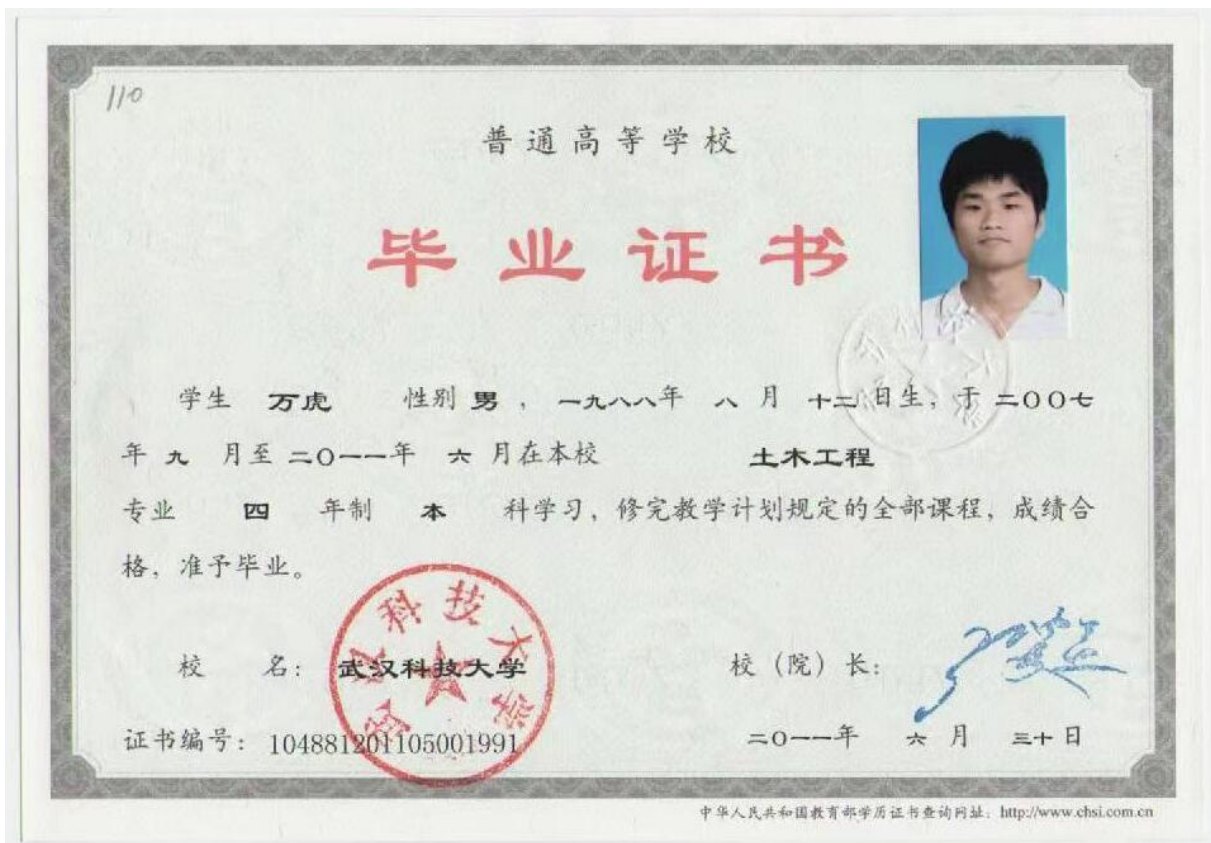 110
普通高等学校
毕业证书
学生 万虎 性别 男 ，一九八八年 八 月 十二 日生，于 二〇〇七
年 九 月至 二〇一一年 六 月在本校 土木工程
专业 四 年制 本 科学习，修完教学计划规定的全部课程，成绩合
格，准予毕业。
武汉科技大学
校 名： 武汉科技大学 校（院）长：
证书编号： 104881201105001991 二〇一一年 六 月 三十 日
中华人民共和国教育部学历证书查询网址：http://www.chsi.com.cn